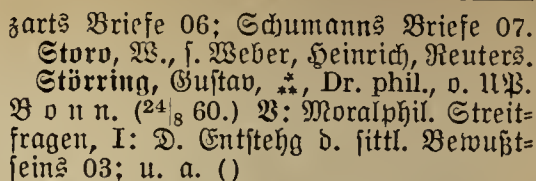 zarts Briefe 06; Schumanns Briefe 07.
Storo, W., s. Weber, Heinrich, Reuters.
Störring, Gustav, ⁂, Dr. phil., o. UP.
Bonn. (24|8 60.) V: Moralphil. Streit=
fragen, I: D. Entstehg d. sittl. Bewußt=
seins 03; u. a. ()